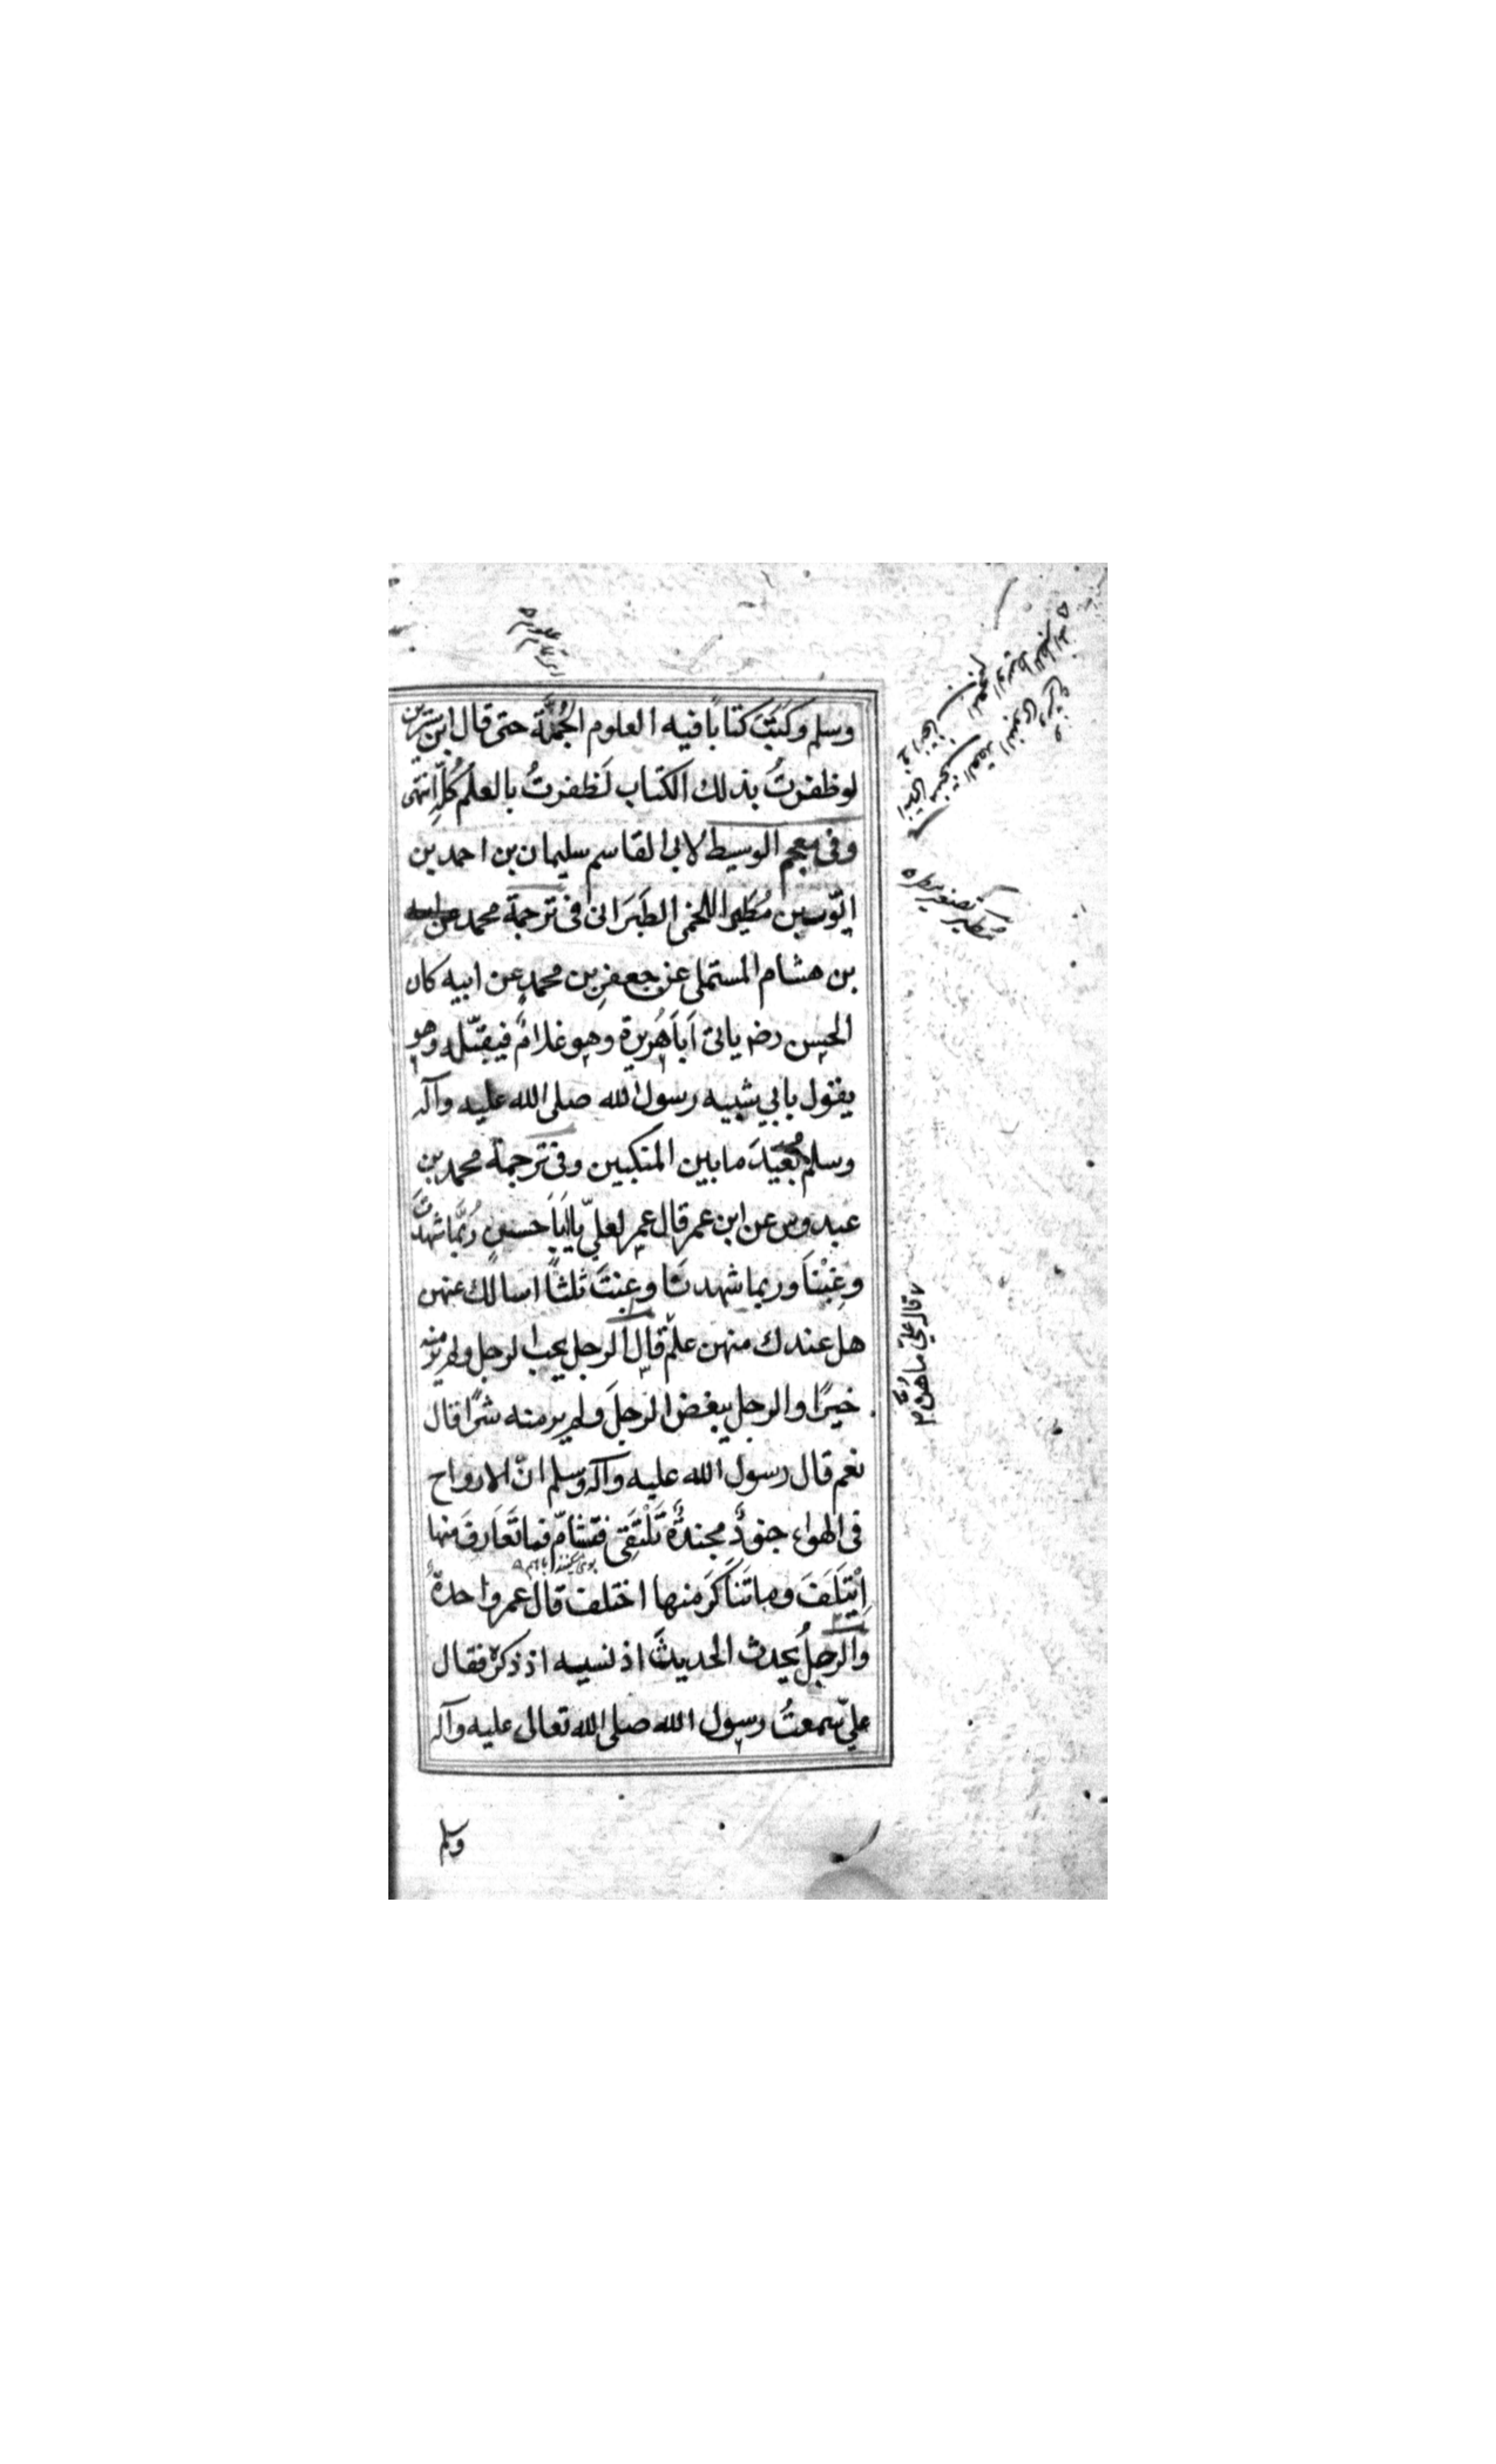 وسلم وكَتَبَ كتابًا فيه العلوم الجُمَّة حتى قال ابن سيرين
لو ظفرتُ بذلك الكتاب لَظفرتُ بالعلم كُلِّه انتهى
وفى معجم الوسيط لابى القاسم سليمان بن احمد بن
ايّوب بن مُطَير اللخمى الطبَرَانى فى ترجمة محمد
بن هشام المستملى عن جعفرِ بن محمدٍ عن ابيه كان
الحسن رضه ياتى اَبَا هُريرة وهو غلامٌ فيقبّله وهو
يقول بابي شبيه رسول الله صلى الله عليه وآله
وسلم بُعَيدَ ما بين المنكبين وفى ترجمة محمد بن
عبدوس عن ابن عمر قال عمر لعليّ يا اَبَا حسنٍ رُبَّما شهدتَّ
وغِبْنَا وربما شهدنَا وغِبْتَ ثلثًا اسالك عنهن
هل عندك منهن علمٌ قال الرجل يحب الرجل ولم ير منه
خيرًا والرجل يبغض الرجلَ ولم ير منه شرًا قال
نعم قال رسول الله عليه وآله وسلم انّ الارواح
فى الهواء جنودٌ مجندةٌ تَلْتَقِى فتشامّ فما تَعَارفَ منها
اِئْتَلَفَ وما تَنَاكَرَ منها اختلف قال عمر واحدةٌ
والرجلُ يحدث الحديثَ اذ نسيه اذ ذكره فقال
عليّ سمعتُ رسول الله صلى الله تعالى عليه وآله
وسلم
قال عليّ ما هُنَّ